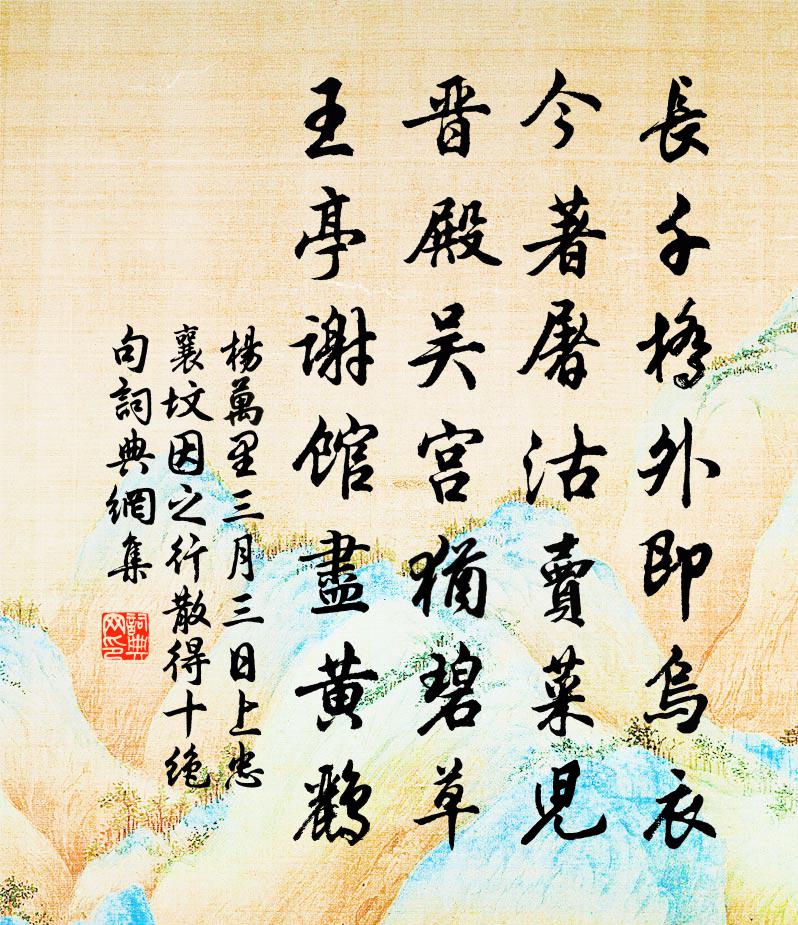 長千橋外即烏衣
今著屠沽賣菜兒
晋殿吴宫猶碧草
王亭謝馆盡黄鸝
楊萬里三月三日上忠
襄坟因之行散得十绝
句詞典網集
詞典
网印